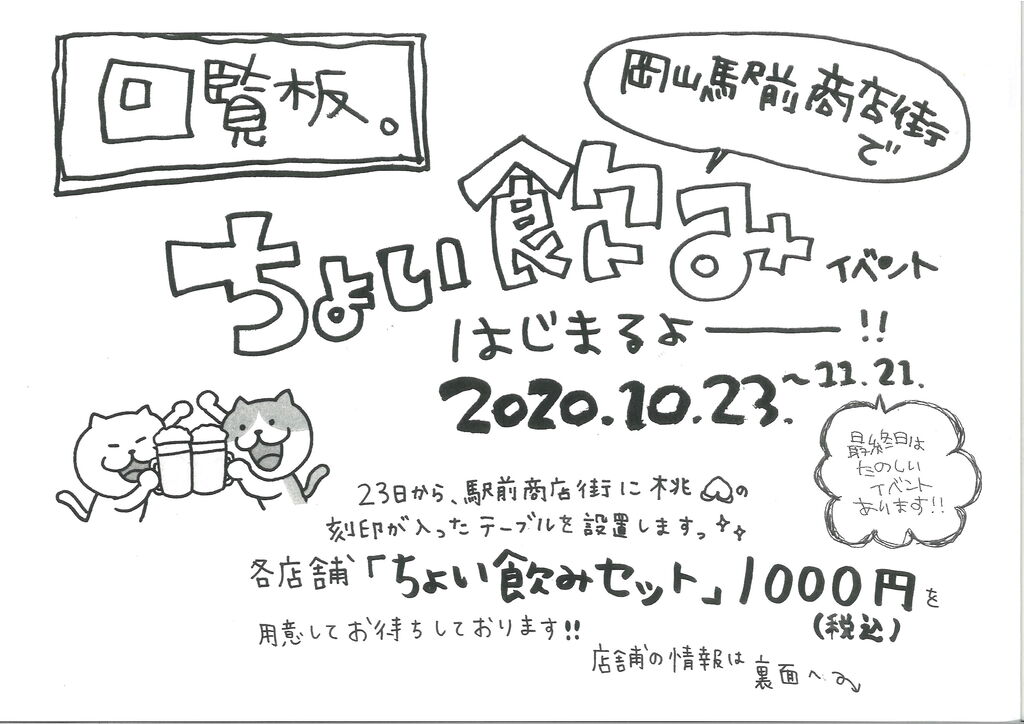 回覧板。
岡山駅前商店街
で
ちょい飲み
イベント
はじまるよ――!!
2020.10.23.~11.21.
最終日は
たのしい
イベント
あります!!
23日から、駅前商店街に桃の
刻印が入ったテーブルを設置します。
各店舗「ちょい飲みセット」1000円を
(税込)
用意してお待ちしております!!
店舗の情報は裏面へ